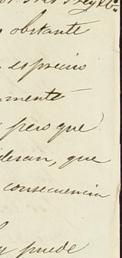 obstante
es preciso
mente
pero que
sideran, que
consecuencia
puede